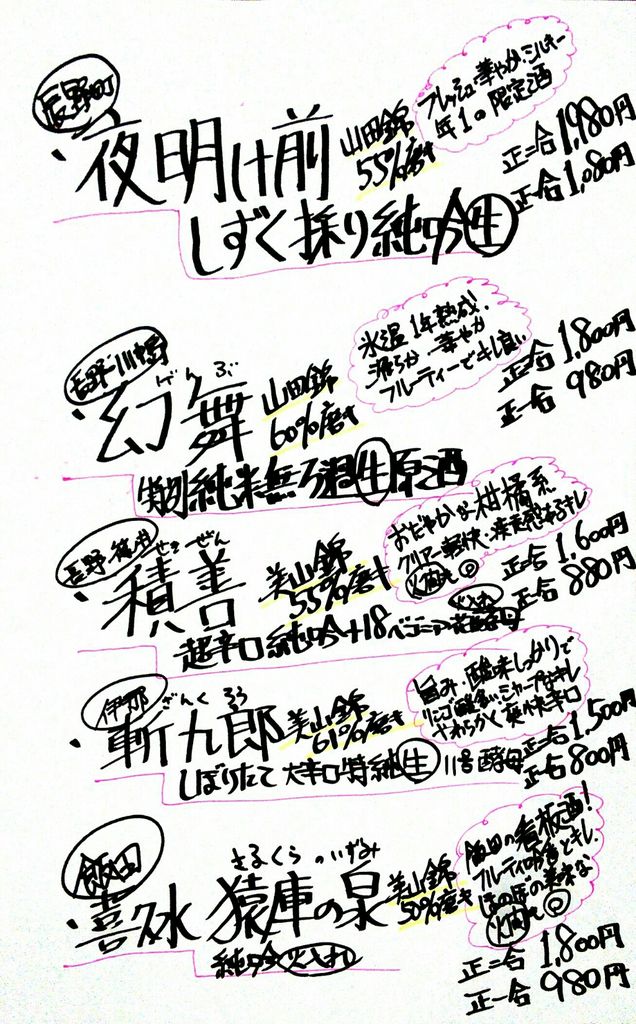 辰野町
フレッシュ・華やか・シルキー
年1の限定酒
・夜明け前
山田錦
55%磨き
正二合 1,980円
正一合 1,080円
しずく採り純吟 生
長野・川中島
氷温1年熟成!
滑らか 華やか
フルーティーでキレ良い
げん ぶ
・幻舞
山田錦
60%磨き
正二合 1,800円
正一合 980円
特別純米無ろ過生原酒
おだやかな柑橘系
クリアー・軽快・清涼感あるキレ
せき ぜん
・積善
美山錦
55%磨き
正二合 1,600円
正一合 880円
超辛口純吟+18 ベゴニア花酵母
火入れ
伊那
旨み・酸味しっかりで
やわらかく爽快辛口
ざん く ろう
・斬九郎
美山錦
61%磨き
正二合 1,500円
正一合 800円
しぼりたて 大辛口特純 生 11号酵母
飯田
飯田の看板酒!
さるくら の いずみ
・喜久水 猿庫の泉
美山錦
50%磨き
正二合 1,800円
正一合 980円
純吟 火入れ